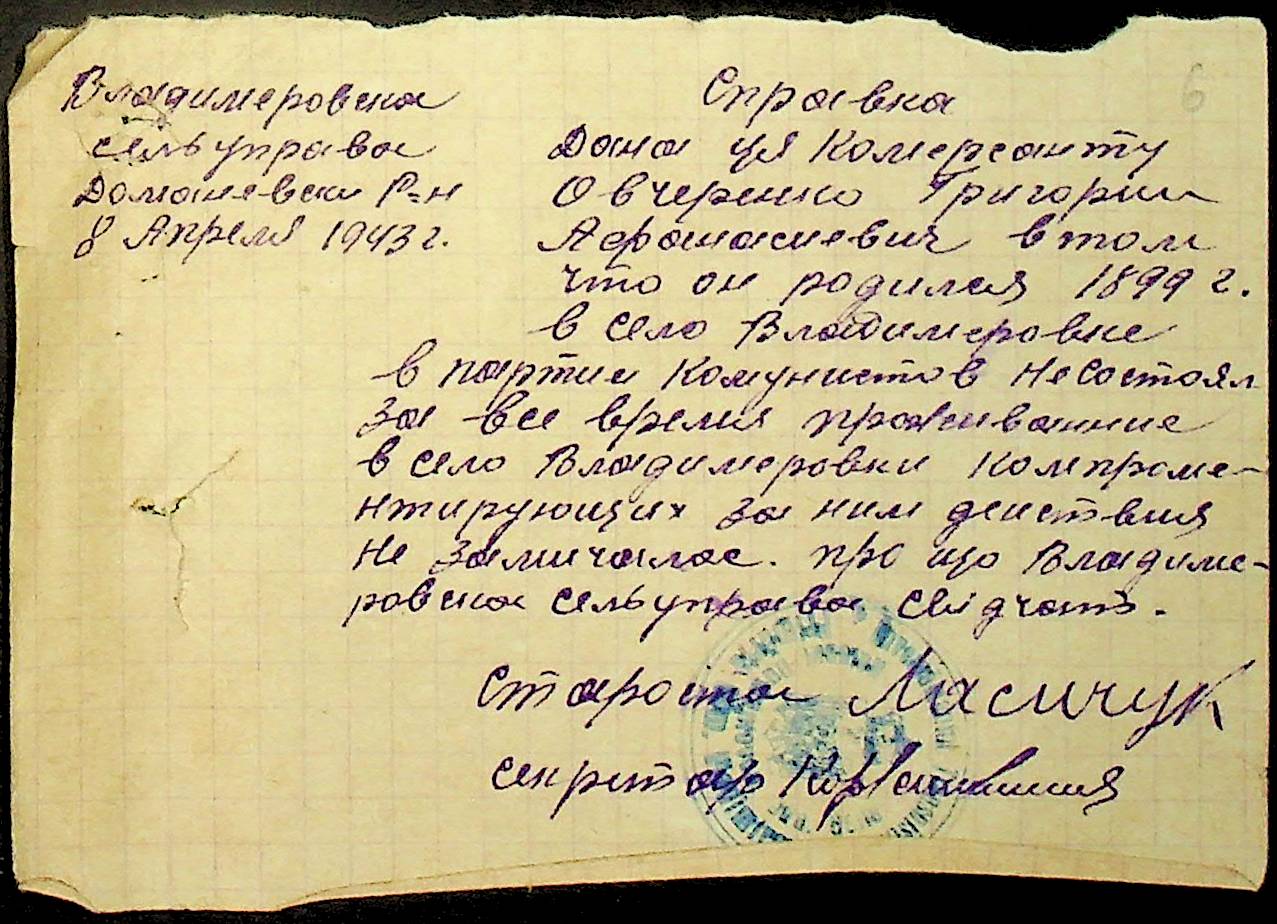 6
Владимеровска
сельуправа
Доманевски Р-н
8 Апреля 1943 г.
Справка
Дана ця Комерсанту
Овчеренко Григории
Афанасиевич в том
что он родился 1899 г.
в село Владимеровке
в партии Комунистов НеСостоял
За все время проживанние
в село Владимеровки Компроме-
нтирующих за ним деиствия
Не Замичалос. про що Владиме-
ровска Сельуправа Свідчать.
Староста
Секретарь